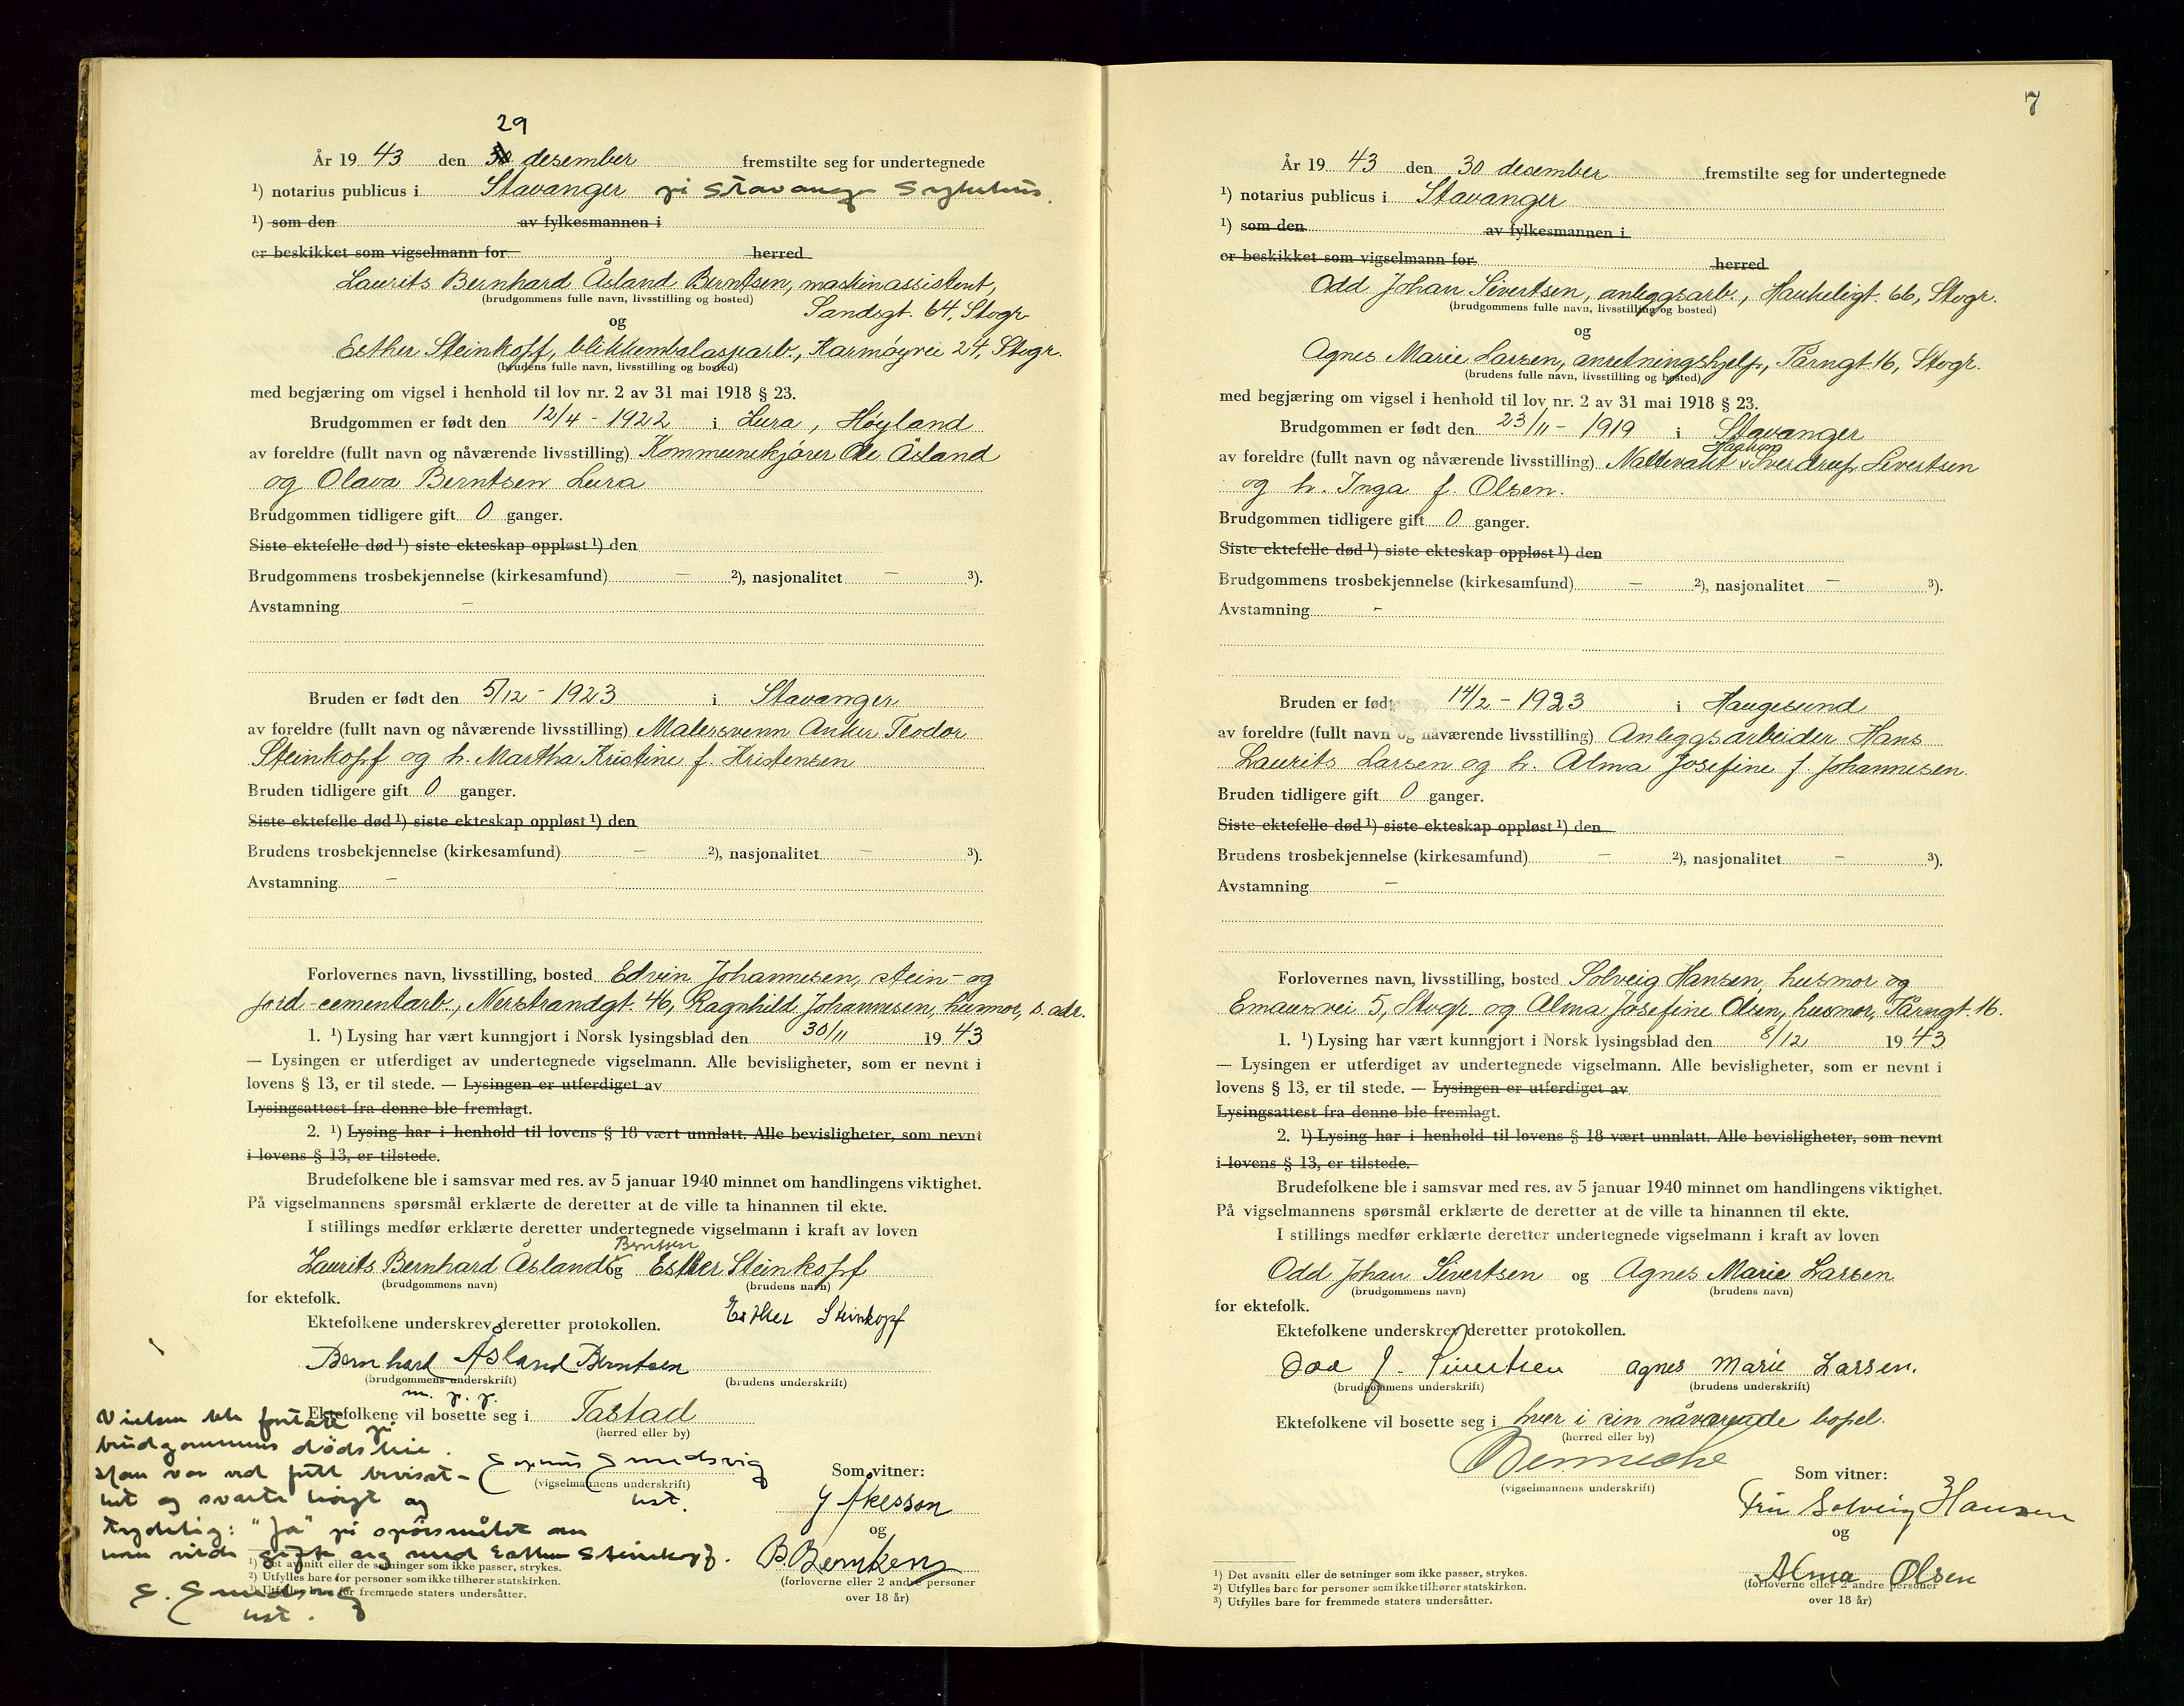 29
År 19 43 den 30 desember fremstilte seg for undertegnede
¹) notarius publicus i Stavanger på Stavanger Sykehus.
¹) som den av fylkesmannen i
er beskikket som vigselmann for herred
Laurits Bernhard Åsland Berntsen, maskinassistent,
(brudgommens fulle navn, livsstilling og bosted)
Sandsgt. 64, Stvgr.
og
Esther Steinkopf, blikkembalasjearb., Karmøyvei 24, Stvgr.
(brudens fulle navn, livsstilling og bosted)
med begjæring om vigsel i henhold til lov nr. 2 av 31 mai 1918 § 23.
Brudgommen er født den 12/4 - 1922 i Lura, Høyland
av foreldre (fullt navn og nåværende livsstilling) Kommunekjører Ole Åsland
og Olava Berntsen Lura
Brudgommen tidligere gift 0 ganger.
Siste ektefelle død ¹) siste ekteskap oppløst ¹) den
Brudgommens trosbekjennelse (kirkesamfund) — ²), nasjonalitet — ³).
Avstamning —
Bruden er født den 5/12 - 1923 i Stavanger
av foreldre (fullt navn og nåværende livsstilling) Malersvenn Anker Teodor
Steinkopf og h. Martha Kristine f. Kristensen
Bruden tidligere gift 0 ganger.
Siste ektefelle død ¹) siste ekteskap oppløst ¹) den
Brudens trosbekjennelse (kirkesamfund) — ²), nasjonalitet — ³).
Avstamning —
Forlovernes navn, livsstilling, bosted Edvin Johannesen, stein- og
jord-cementarb., Nerstrandgt. 46, Ragnhild Johannesen, husmor, s. adr.
1. ¹) Lysing har vært kunngjort i Norsk lysingsblad den 30/11 19 43
— Lysingen er utferdiget av undertegnede vigselmann. Alle bevisligheter, som er nevnt i
lovens § 13, er til stede. — Lysingen er utferdiget av
Lysingsattest fra denne ble fremlagt.
2. ¹) Lysing har i henhold til lovens § 18 vært unnlatt. Alle bevisligheter, som nevnt
i lovens § 13, er tilstede.
Brudefolkene ble i samsvar med res. av 5 januar 1940 minnet om handlingens viktighet.
På vigselmannens spørsmål erklærte de deretter at de ville ta hinannen til ekte.
I stillings medfør erklærte deretter undertegnede vigselmann i kraft av loven
Berntsen
Laurits Bernhard Åsland og Esther Steinkopf
(brudgommens navn) (brudens navn)
for ektefolk.
Ektefolkene underskrev deretter protokollen. Esther Steinkopf
Bernhard Åsland Berntsen
(brudgommens underskrift) (brudens underskrift)
m. p. p.
Ektefolkene vil bosette seg i Tastad
(herred eller by)
Vielsen ble foretatt på
brudgommens dødsleie.
Han var ved full bevisst-
het og svarte høyt og
tydelig: "Ja" på spørsmålet om
han vilde gifte sig med Esther Steinkopf.
E. Smedsvig
kst.
Smedsvig
(vigselmannens underskrift)
kst.
Som vitner:
Y Åkesson
og
B. Berntsen
(forloverne eller 2 andre personer
over 18 år)
¹) Det avsnitt eller de setninger som ikke passer, strykes.
²) Utfylles bare for personer som ikke tilhører statskirken.
³) Utfylles bare for fremmede staters undersåtter.
7
År 19 43 den 30 desember fremstilte seg for undertegnede
¹) notarius publicus i Stavanger
¹) som den av fylkesmannen i
er beskikket som vigselmann for herred
Odd Johan Sivertsen, anleggsarb., Haukeligt. 66, Stvgr.
(brudgommens fulle navn, livsstilling og bosted)
og
Agnes Marie Larsen, anretningshjelp, Tårngt. 16, Stvgr.
(brudens fulle navn, livsstilling og bosted)
med begjæring om vigsel i henhold til lov nr. 2 av 31 mai 1918 § 23.
Brudgommen er født den 23/11 - 1919 i Stavanger
av foreldre (fullt navn og nåværende livsstilling) Nattevakt Sverdrup Sivertsen
og h. Inga f. Olsen.
Brudgommen tidligere gift 0 ganger.
Siste ektefelle død ¹) siste ekteskap oppløst ¹) den
Brudgommens trosbekjennelse (kirkesamfund) — ²), nasjonalitet — ³).
Avstamning -
Bruden er født 14/2 - 1923 i Haugesund
av foreldre (fullt navn og nåværende livsstilling) Anleggsarbeider Hans
Laurits Larsen og h. Alma Josefine f. Johannesen.
Bruden tidligere gift 0 ganger.
Siste ektefelle død ¹) siste ekteskap oppløst ¹) den
Brudens trosbekjennelse (kirkesamfund) — ²), nasjonalitet — ³).
Avstamning —
Forlovernes navn, livsstilling, bosted Solveig Hansen, husmor og
Emausvei 5, Stvgr. og Alma Josefine Olsen, husmor, Tårngt. 16.
1. ¹) Lysing har vært kunngjort i Norsk lysingsblad den 8/12 19 43
— Lysingen er utferdiget av undertegnede vigselmann. Alle bevisligheter, som er nevnt i
lovens § 13, er til stede. — Lysingen er utferdiget av
Lysingsattest fra denne ble fremlagt.
2. ¹) Lysing har i henhold til lovens § 18 vært unnlatt. Alle bevisligheter, som nevnt
i lovens § 13, er tilstede.
Brudefolkene ble i samsvar med res. av 5 januar 1940 minnet om handlingens viktighet.
På vigselmannens spørsmål erklærte de deretter at de ville ta hinannen til ekte.
I stillings medfør erklærte deretter undertegnede vigselmann i kraft av loven
Odd Johan Sivertsen og Agnes Marie Larsen
(brudgommens navn) (brudens navn)
for ektefolk.
Ektefolkene underskrev deretter protokollen.
Odd J. Sivertsen Agnes Marie Larsen.
(brudgommens underskrift) (brudens underskrift)
Ektefolkene vil bosette seg i hver i sin nåværende bopel.
(herred eller by)
Benneche
(vigselmannens underskrift)
Som vitner:
Fru Solveig Hansen
og
Alma Olsen
(forloverne eller 2 andre personer
over 18 år)
¹) Det avsnitt eller de setninger som ikke passer, strykes.
²) Utfylles bare for personer som ikke tilhører statskirken.
³) Utfylles bare for fremmede staters undersåtter.